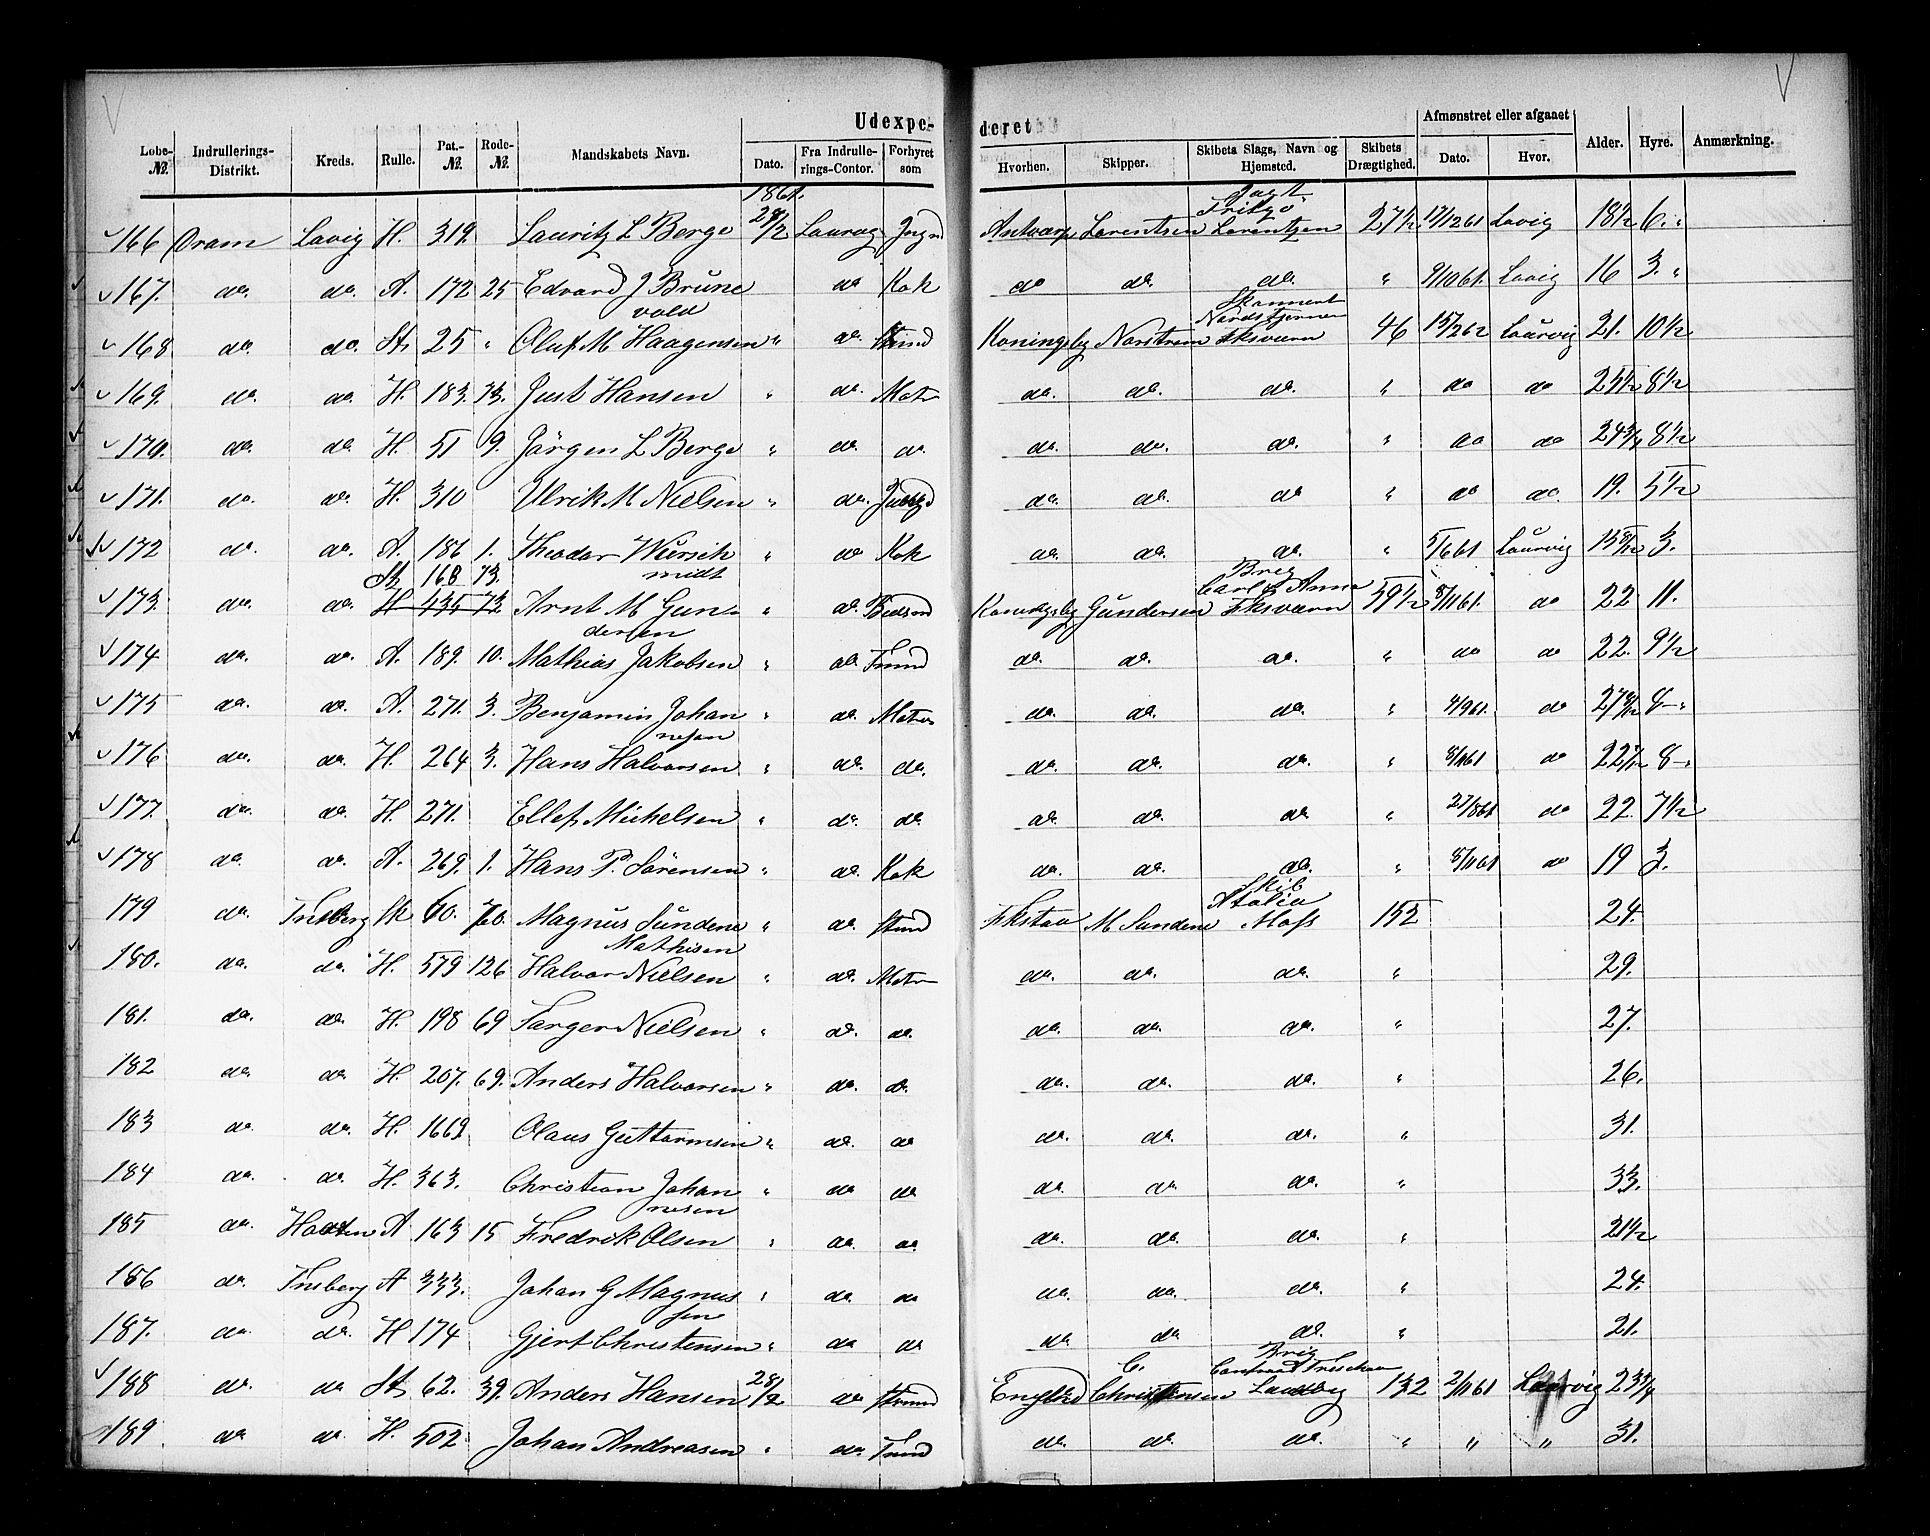 Udexpederet
Løbe-№. Indrullerings-Distrikt. Kreds. Rulle. Pat.-№. Rode-№. Mandskabets Navn. Dato. Fra Indrullerings-Contor. Forhyret som Hvorhen. Skipper. Skibets Slags, Navn og Hjemsted. Skibets Drægtighed. Afmønstret eller afgaaet Dato. Hvor. Alder. Hyre. Anmærkning.
1861.
166 Dram Lavig H. 319. Lauritz L Berge 28/2 Laurvg Antwerp Larentsen Jagt Fritzø Larentzen 27½ 17/12 61 Lavig 18½ 6.
167. do. do. A. 172 25 Edvard J Brunevold do Kok do do. do. " 9/10 61. Lavig 16 3.
168 do. do. St. 25 " Oluf M Haagensen " do. Koningsby Norstrøm Nordstjernen Fksværn 46 15/2 62 Laurvig 21. 10½
169. do. do. H. 183. 73. Just Hansen " do. Matr do. do. do. " do do 25½ 8½
170. do. do. H. 51 9. Jørgen L Berge " do. do. do. do. do. " do do 24¾ 8½
171. do. do. H. 310 Ulrik M Nielsen " do. do. do. do " do do. 19. 5½
172 do. do. A. 186 1. Theodor Würschmidt " do Kok do. do. do. " 5/6 61 Laurvig 15 3.
St. 168 73.
173. do. do. H 435 73. Arnt M Gundersen " do. Koningsby Gundersen Brig Carl & Anna Fksværn 59½ 8/11 61. do 22 11.
174 do. do. A. 189. 10. Mathias Jakobsen " do. Tmnd do. do. do. " do do 22. 9½
175 do. do. A. 271. 3. Benjamin Johannesen " do. Matr do. do. do. " 4/9 61. do 27 8
176 do. do. H. 264 3. Hans Halvorsen " do. do. do. do. do. " 8/11 61 do 22 8
177. do. do. H. 271. Ellef Mickelsen " do. do. do. do. do. " 27/8 61 do 22. 7½
178 do. do. A. 269. 1. Hans P. Sørensen " do. Kok do. do. do. " 8/11 61 do 19 3.
179 do. Tnsberg St 60. 70. Magnus Sundene " do. Stmd Fkstad M Sundene Skib Atalia Moss 152 24.
180. do. do. H. 579 126 Halvor Mathisen Nielsen " do. Matr do. do. do. " 29.
181. do. do. H. 198 69 Torger Nielsen " do. do. do. do. do. " 27.
182 do. do. H. 207. 69. Anders Halvorsen " do. do. do. do. do. " 26.
183 do do. H. 1669 Olaus Guttormsen " do. do do. do. do. " 31.
184 do. do. H. 363. Christian Johannesen " do do do. do. do. " 33.
185 do. Holsten A 163 15 Fredrik Olsen " do. do. do. do. do. " 21½
186 do. Tnsberg A 333. Johan G Magnussen " do. do do. do. do. " 24.
187. do. do. H 174 Gjert Christensen " do do do. do do. " 21.
188 do. do St. 62. 39. Anders Hansen 28/2 do England C. Christensen Brig Laurvig 132 2/11 61 Laurvig 23¾
189 do do. H. 502. Johan Andreasen " do Tmnd do. do. do. " " " 31.